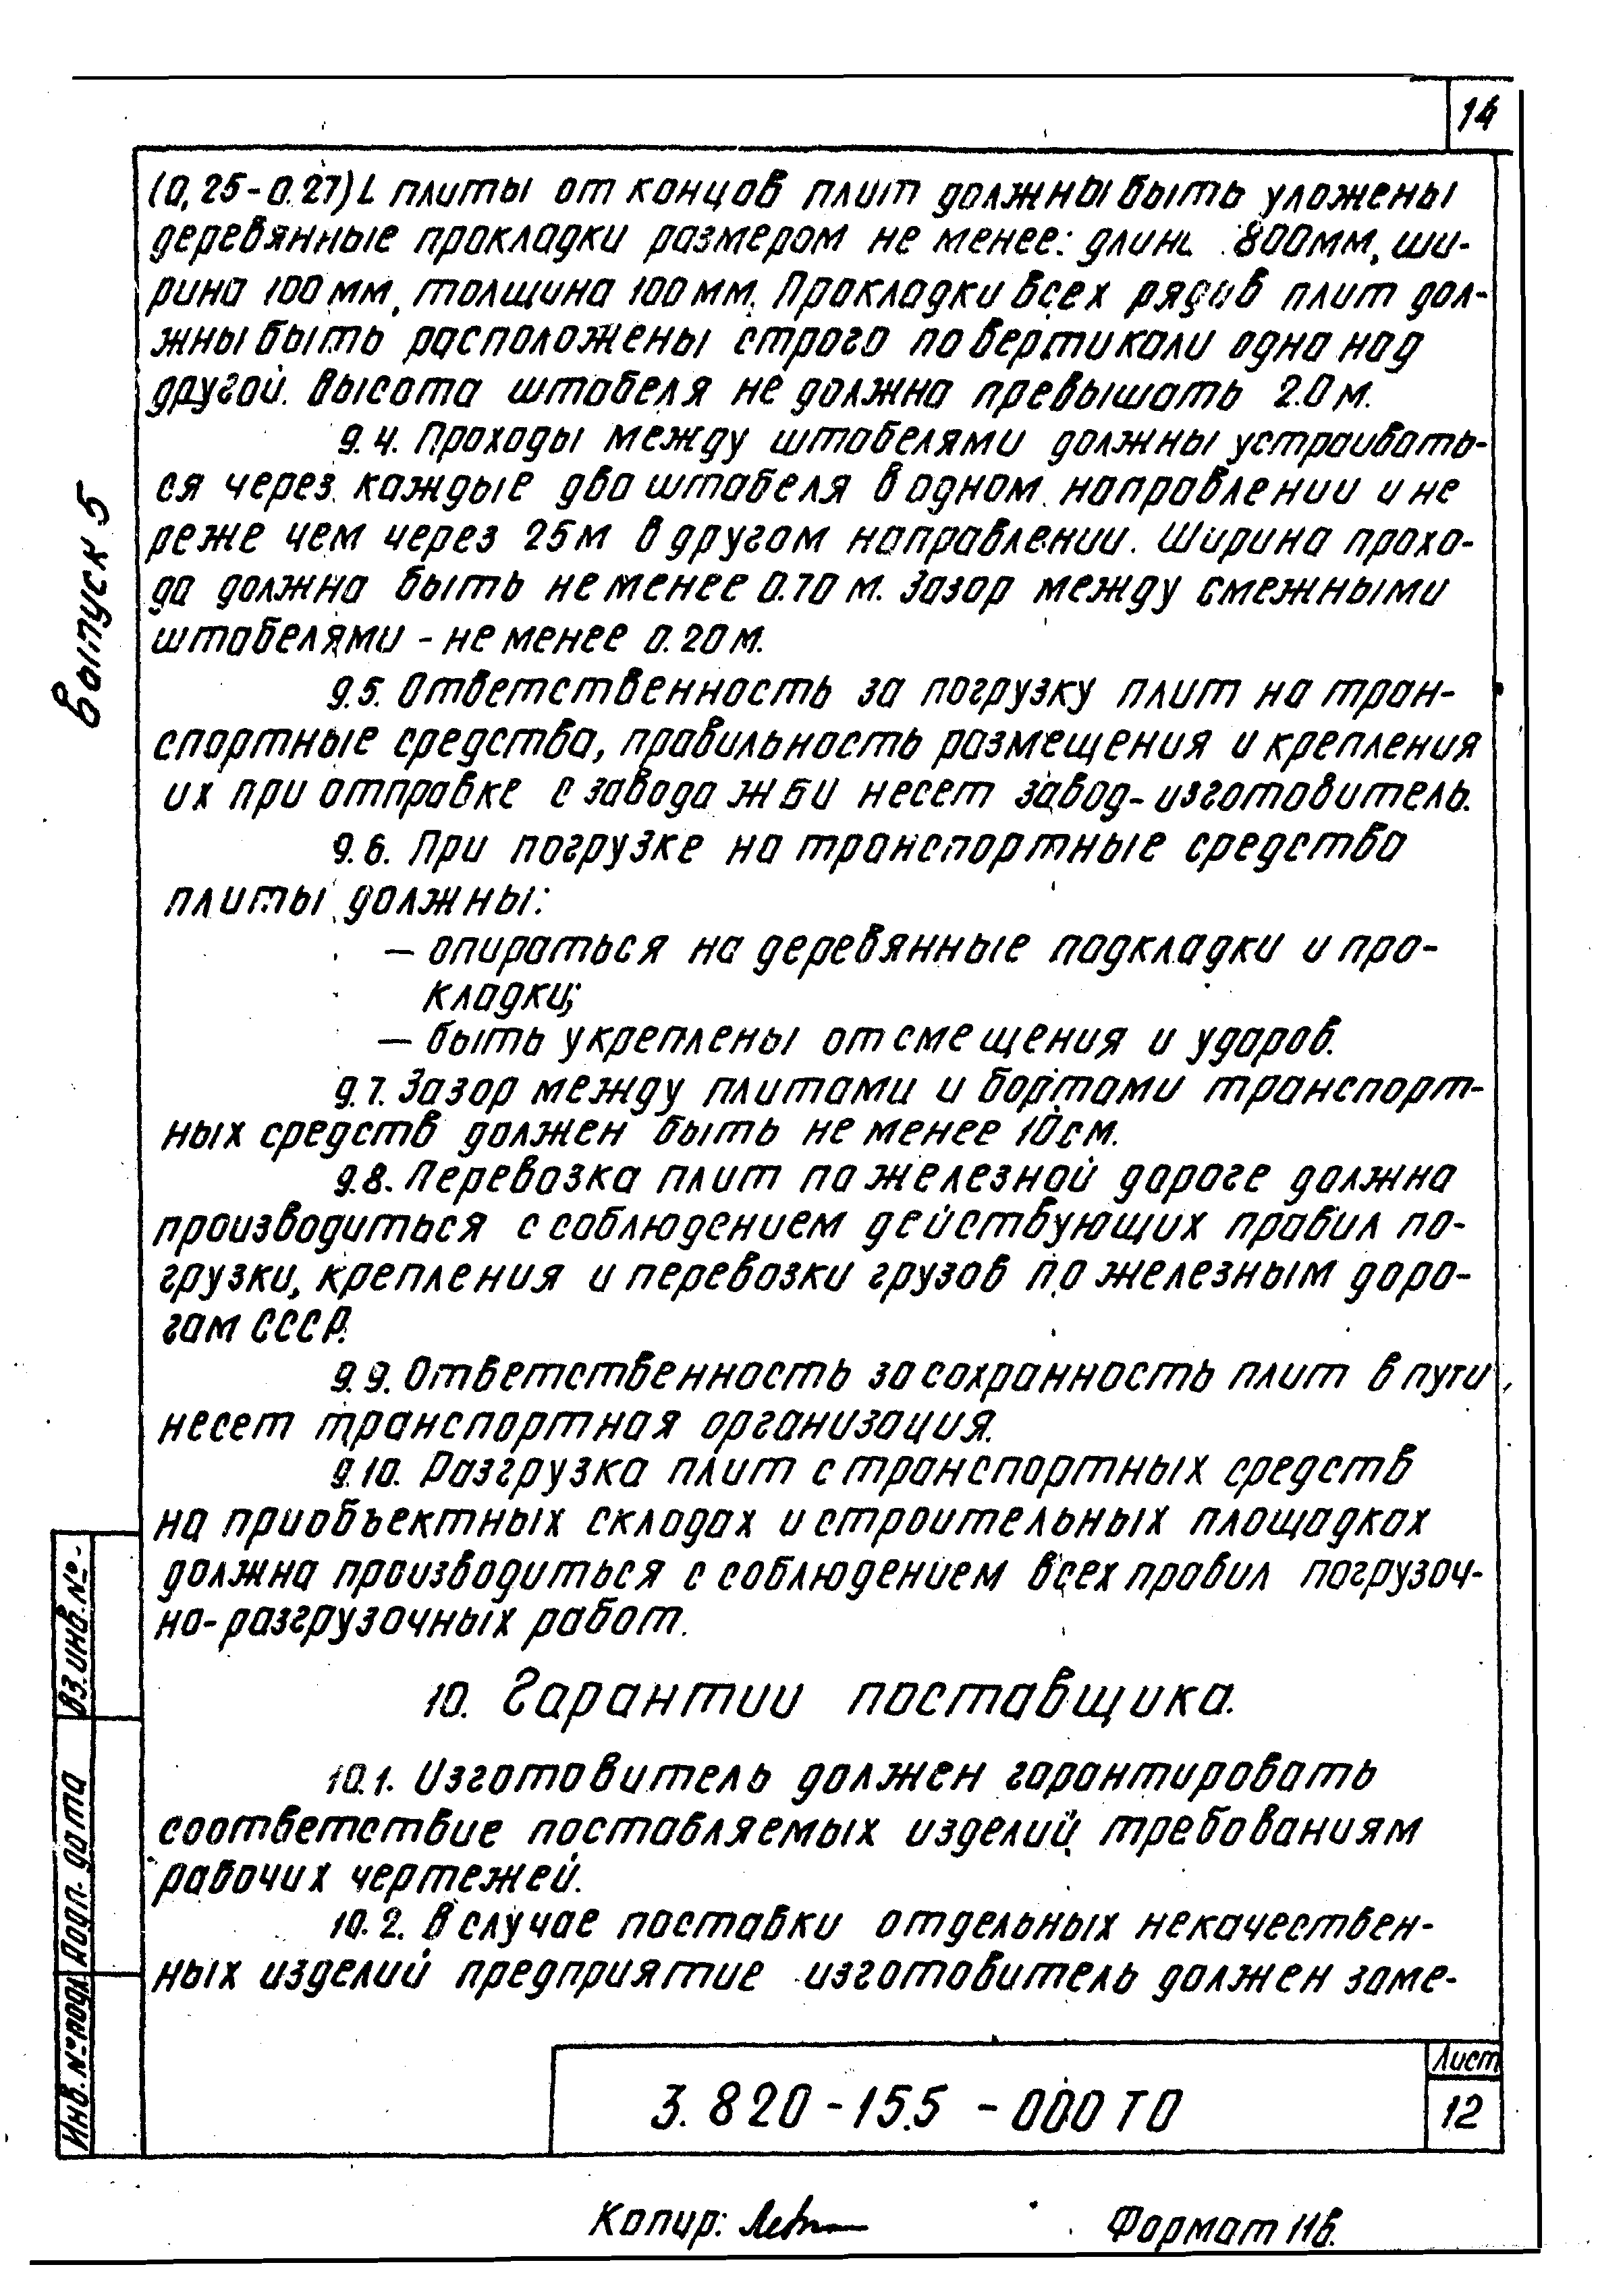 14
(0,25-0.27)L плиты от концов плит должны быть уложены
деревянные прокладки размером не менее: 800мм, ши-
рина 100мм, толщина 100мм. Прокладки всех рядов плит дол-
жны быть расположены строго по вертикали одна над
другой. Высота штабеля не должна превышать 2.0 м.
9.4. Проходы между штабелями должны устраивать-
ся через каждые два штабеля в одном направлении и не
реже чем через 25м в другом направлении. Ширина прохо-
да должна быть не менее 0.70 м. Зазор между смежными
штабелями - не менее 0.20м.
9.5. Ответственность за погрузку плит на тран-
спортные средства, правильность размещения и крепления
их при отправке с завода ЖБИ несет завод-изготовитель.
9.6. При погрузке на транспортные средства
плиты должны:
— опираться на деревянные подкладки и про-
кладки;
— быть укреплены от смещения и ударов.
9.7. Зазор между плитами и бортами транспорт-
ных средств должен быть не менее 10см.
9.8. Перевозка плит по железной дороге должна
производиться с соблюдением действующих правил по-
грузки, крепления и перевозки грузов по железным доро-
гам СССР.
9.9. Ответственность за сохранность плит в пути
несет транспортная организация.
9.10. Разгрузка плит с транспортных средств
на приобъектных складах и строительных площадках
должна производиться с соблюдением всех правил погрузоч-
но-разгрузочных работ.
10. Гарантии поставщика.
10.1. Изготовитель должен гарантировать
соответствие поставляемых изделий требованиям
рабочих чертежей.
10.2. В случае поставки отдельных некачествен-
ных изделий предприятие изготовитель должен заме-
Выпуск 5
Вз.инв.№
Подп. дата
Инв.№ подл.
3.820-15.5-000ТО
Лист
12
Копир:
Формат 11в.